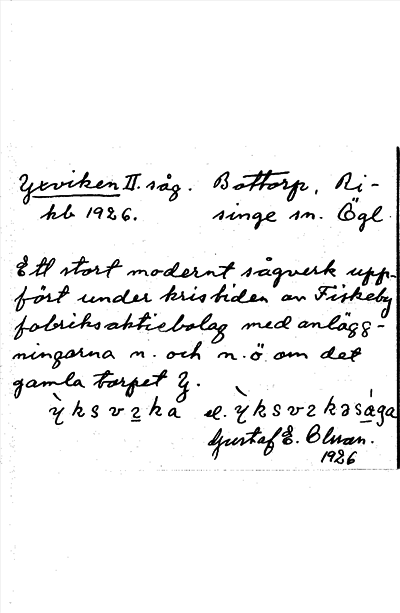 Yxviken II. såg. Bottorp, Ri-
kb 1926. singe sn. Ögl
Ett stort modernt sågverk upp-
fört under kristiden av Fiskeby
fabriksaktiebolag med anlägg-
ningarna n. och n.ö. om det
gamla torpet Y.
ỳksvɪka el. ỳksvɪkəsåga
Gustaf E.
1926